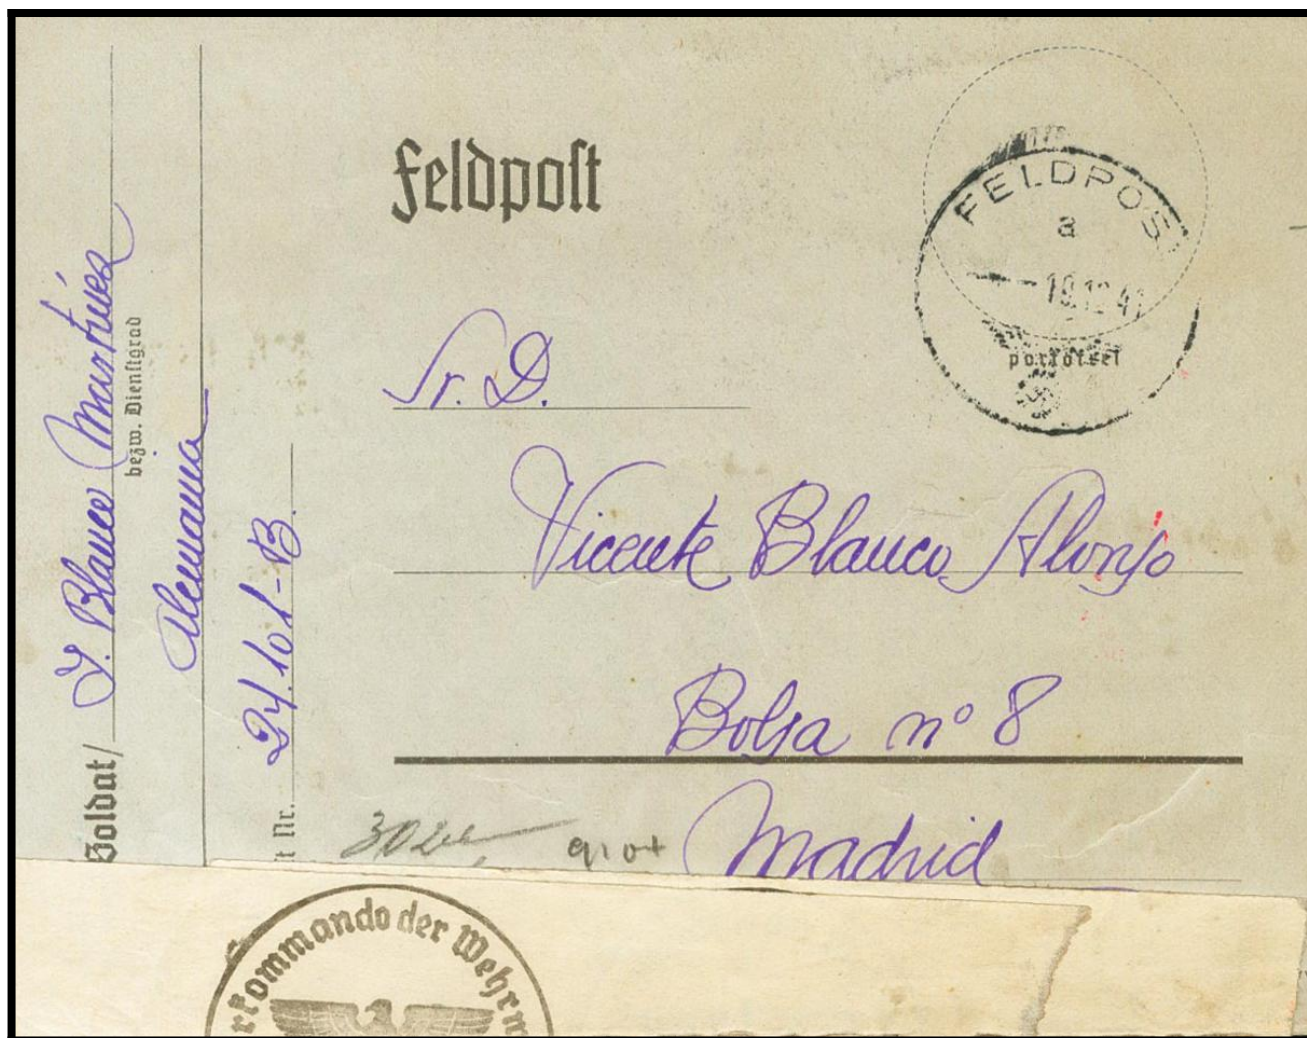 Feldpost
FELDPOS
a
portofrei
Sr. D.
Vicente Blanco Alonso
Bolsa nº 8
Madrid
Soldat/ J. Blanco Martínez
bezw. Dienstgrad
Alemania
t Nr. 24.101-B.
rkommando der Wehrm